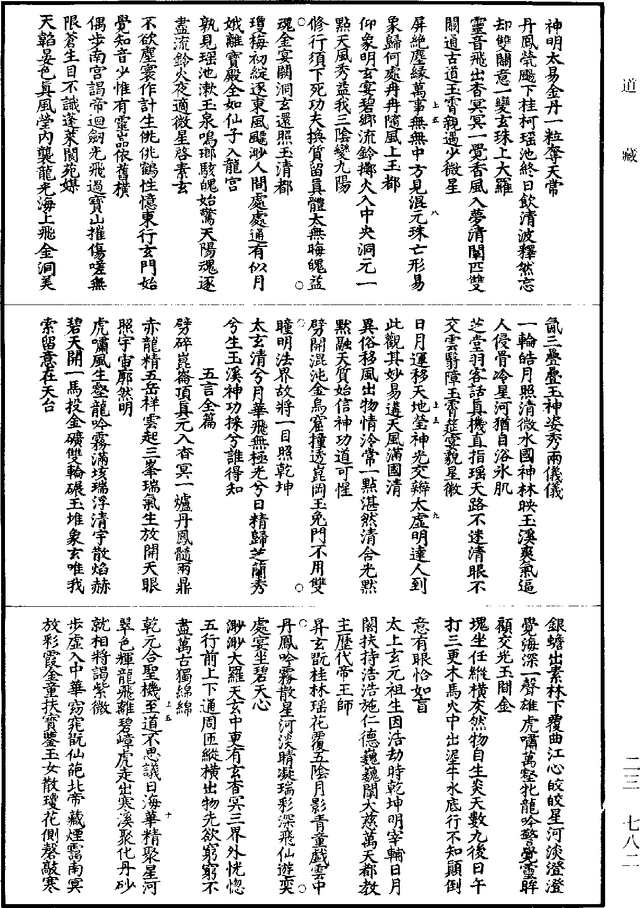 道藏
神明太易金丹一粒奪天常
丹鳳㷀飈下桂柯瑤池終日飲清波釋然忘
却雙關意一變玄珠上大羅
靈音飛出杳冥冥一覺香風入夢清閬匹雙
關通古道玉霄親過少微星
屏絕塵緣萬事無無中方見混元珠亡形易
象歸何處冉冉隨風上玉都
仰象明玄宴碧鄉流鈴擲火入中央洞元一
點天風秀益我三陰變九陽
修行須下死功夫換質留真體太無晦魄益
魂金宴闕洞玄還照玉清都
瓊梅初綻逐東風飈渺人間處處通有似月
娥離寶殿全如仙子入龍宮
孰見瑤池漱玉泉鳴瑯駭魄始驚天陽魂逐
盡流鈴火夜適微星啓素玄
不欲塵寰作計生恍恍鶴性憶東行玄門始
覺知音少惟有雲品依舊橫
偶步南宮謁帝迴劍光飛過寶山摧傷嗟無
限蒼生目不識蓬萊閬苑媒
天韜晏色真風瑩內襲龍光海上飛金洞美
氤三疊疊玉神姿秀兩儀儀
一輪皓月照清微水國神林映玉溪爽氣逼
人侵骨冷星河猶自浴氷肌
芝堂羽客話真機直指瑤天路不迷清眼不
交雲翳障玉霄莛䆗藐星微
日月運移天地瑩神光交辦太虛明達人到
此觀其妙易遺天風滿國清
異俗移風出物情泠常一點湛然清合光默
默融天質始信神功道可惺
劈開混沌金烏窟撞透崑岡玉兔門不用雙
瞳明法界故將一日照乾坤
太玄清兮月華飛無極光兮日精歸芝蘭秀
兮生玉溪神功採兮誰得知
五言全篇
劈碎崑崙頂真元入杳冥一爐丹鳳髓兩鼎
赤龍精五岳祥雲起三峯瑞氣生放開天眼
照宇宙廓然明
虎嘯風生壑龍吟霧滿垓瑞浮清宇散焰赫
碧天開一馬投金礦雙輪碾玉堆象玄唯我
索留意在天台
銀蟾出素林下覆曲江心皎皎星河淡澄澄
覺海深一聲雄虎嘯萬壑牝龍吟警覺靈眸
顧交光玉間金
塊坐任縱橫灰然物自生炎天數九後日午
打三更木馬火中出泥牛水底行不知顛倒
意有眼恰如盲
太上玄元祖生因浩劫時乾坤明宰輔日月
闇扶持浩浩施仁德巍巍闡大慈萬天都教
主歷代帝王師
昇玄翫桂林瑤花覆五陰月影青童戲雲中
丹鳳吟霧散星河淡晴凝瑞彩深飛仙遊奕
處宴坐碧天心
渺渺大羅天玄中更有玄杳冥三界外恍惚
五行前上下通周匝縱橫出物先欲窮窮不
盡萬古獨綿綿
乾元合聖機至道不思議日海華精聚星河
翠色輝龍飛離碧嶂虎走出寒溪聚化丹砂
就相將謁紫微
步虛入中華窈窕翫仙葩北帝藏煙靄南冥
放彩霞金童扶寶鑒玉女散瓊花側磬敲寒
二三 七八二